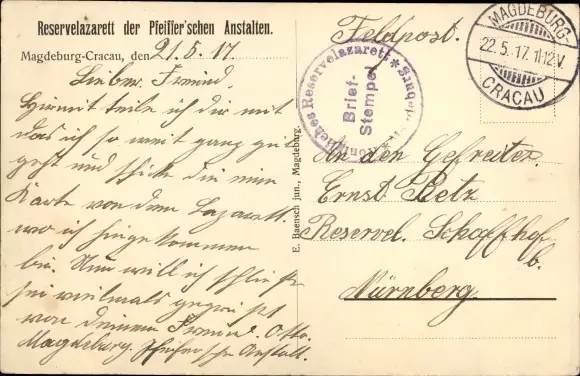 Reservelazarett der Pfeiffer'schen Anstalten.
Magdeburg-Cracau, den 21.5.17.
Lieber Freund,
Hiermit teile ich dir mit
das ich so weit ganz gut
geht und schicke dir eine
Karte von dem Lazarett
wo ich hingekommen
bin. Nun will ich schließe
sei vielmals gegrüßt
von deinem Freund. Otto.
Magdeburg. Pfeifer'sche Anstalt.
E. Baensch jun., Magdeburg.
Feldpost.
Königliches Reservelazarett
Brief-
Stempel
MAGDEBURG-
22.5.17. 11-12.V.
CRACAU
An den Gefreiter
Ernst Betz
Reservel. Schafhof
b.
Nürnberg.